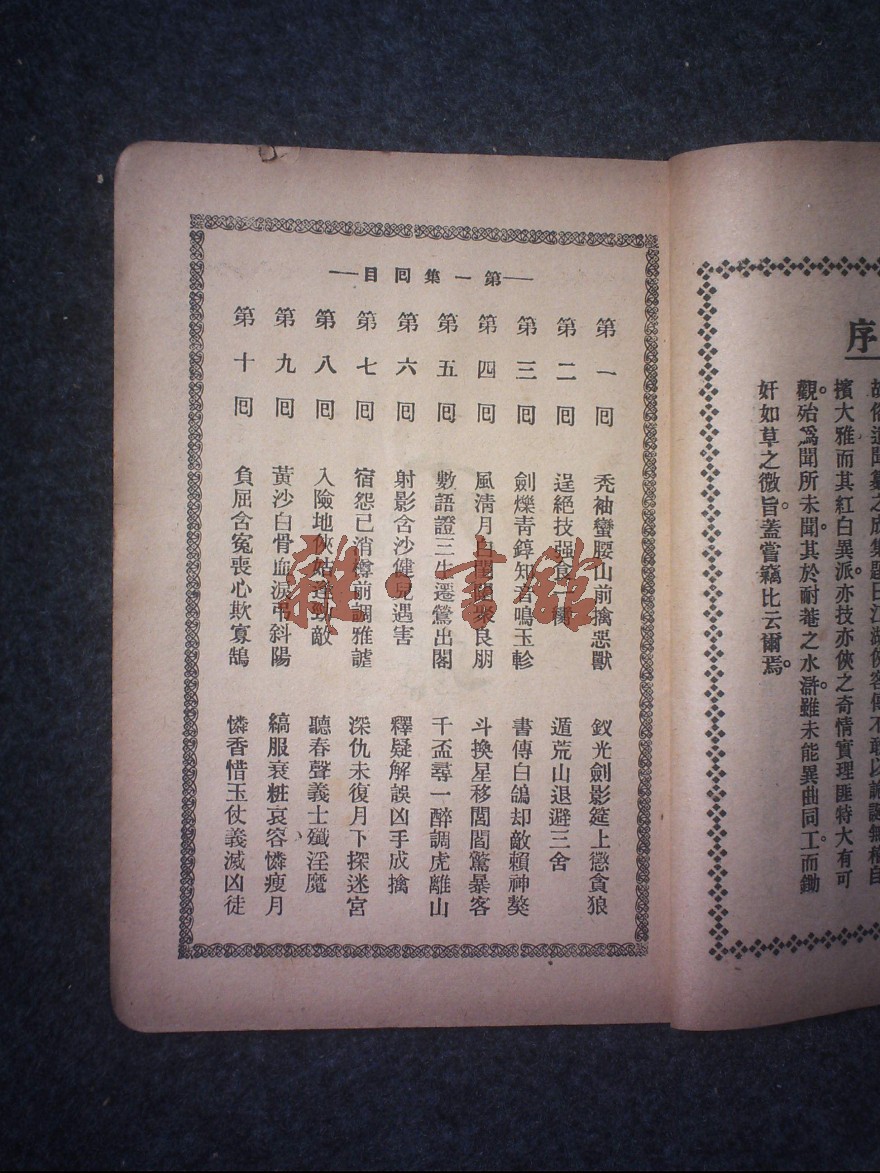 序
之成集題曰江湖俠客傳不敢以無稽自
擯大雅而其紅白異派亦技亦俠之奇情實理匪特大有可
觀。殆爲聞所未聞。其於耐菴之水滸。雖未能異曲同工。而鋤
奸如草之微旨。蓋嘗竊比云爾焉。
—第一集囘目—
第一囘 禿袖蠻腰山前擒惡獸 釵光劍影筵上懲貪狼
第二囘 逞絕技强食 遁荒山退避三舍
第三囘 劍爍靑錞知音鳴玉軫 書傳白鴿却敵賴神獒
第四囘 風淸月白良朋 斗換星移閭閻驚暴客
第五囘 數語證三生遷鶯出閣 千盃尋一醉調虎離山
第六囘 射影含沙健兒遇害 釋疑解誤凶手成擒
第七囘 宿怨已消樽前調雅謔 深仇未復月下探迷宮
第八囘 入險地俠姑逢勁敵 聽春聲義士殲淫魔
第九囘 黃沙白骨血淚弔斜陽 縞服衰粧哀容憐瘦月
第十囘 負屈含寃喪心欺寡鵠 憐香惜玉仗義滅凶徒
雜·書館